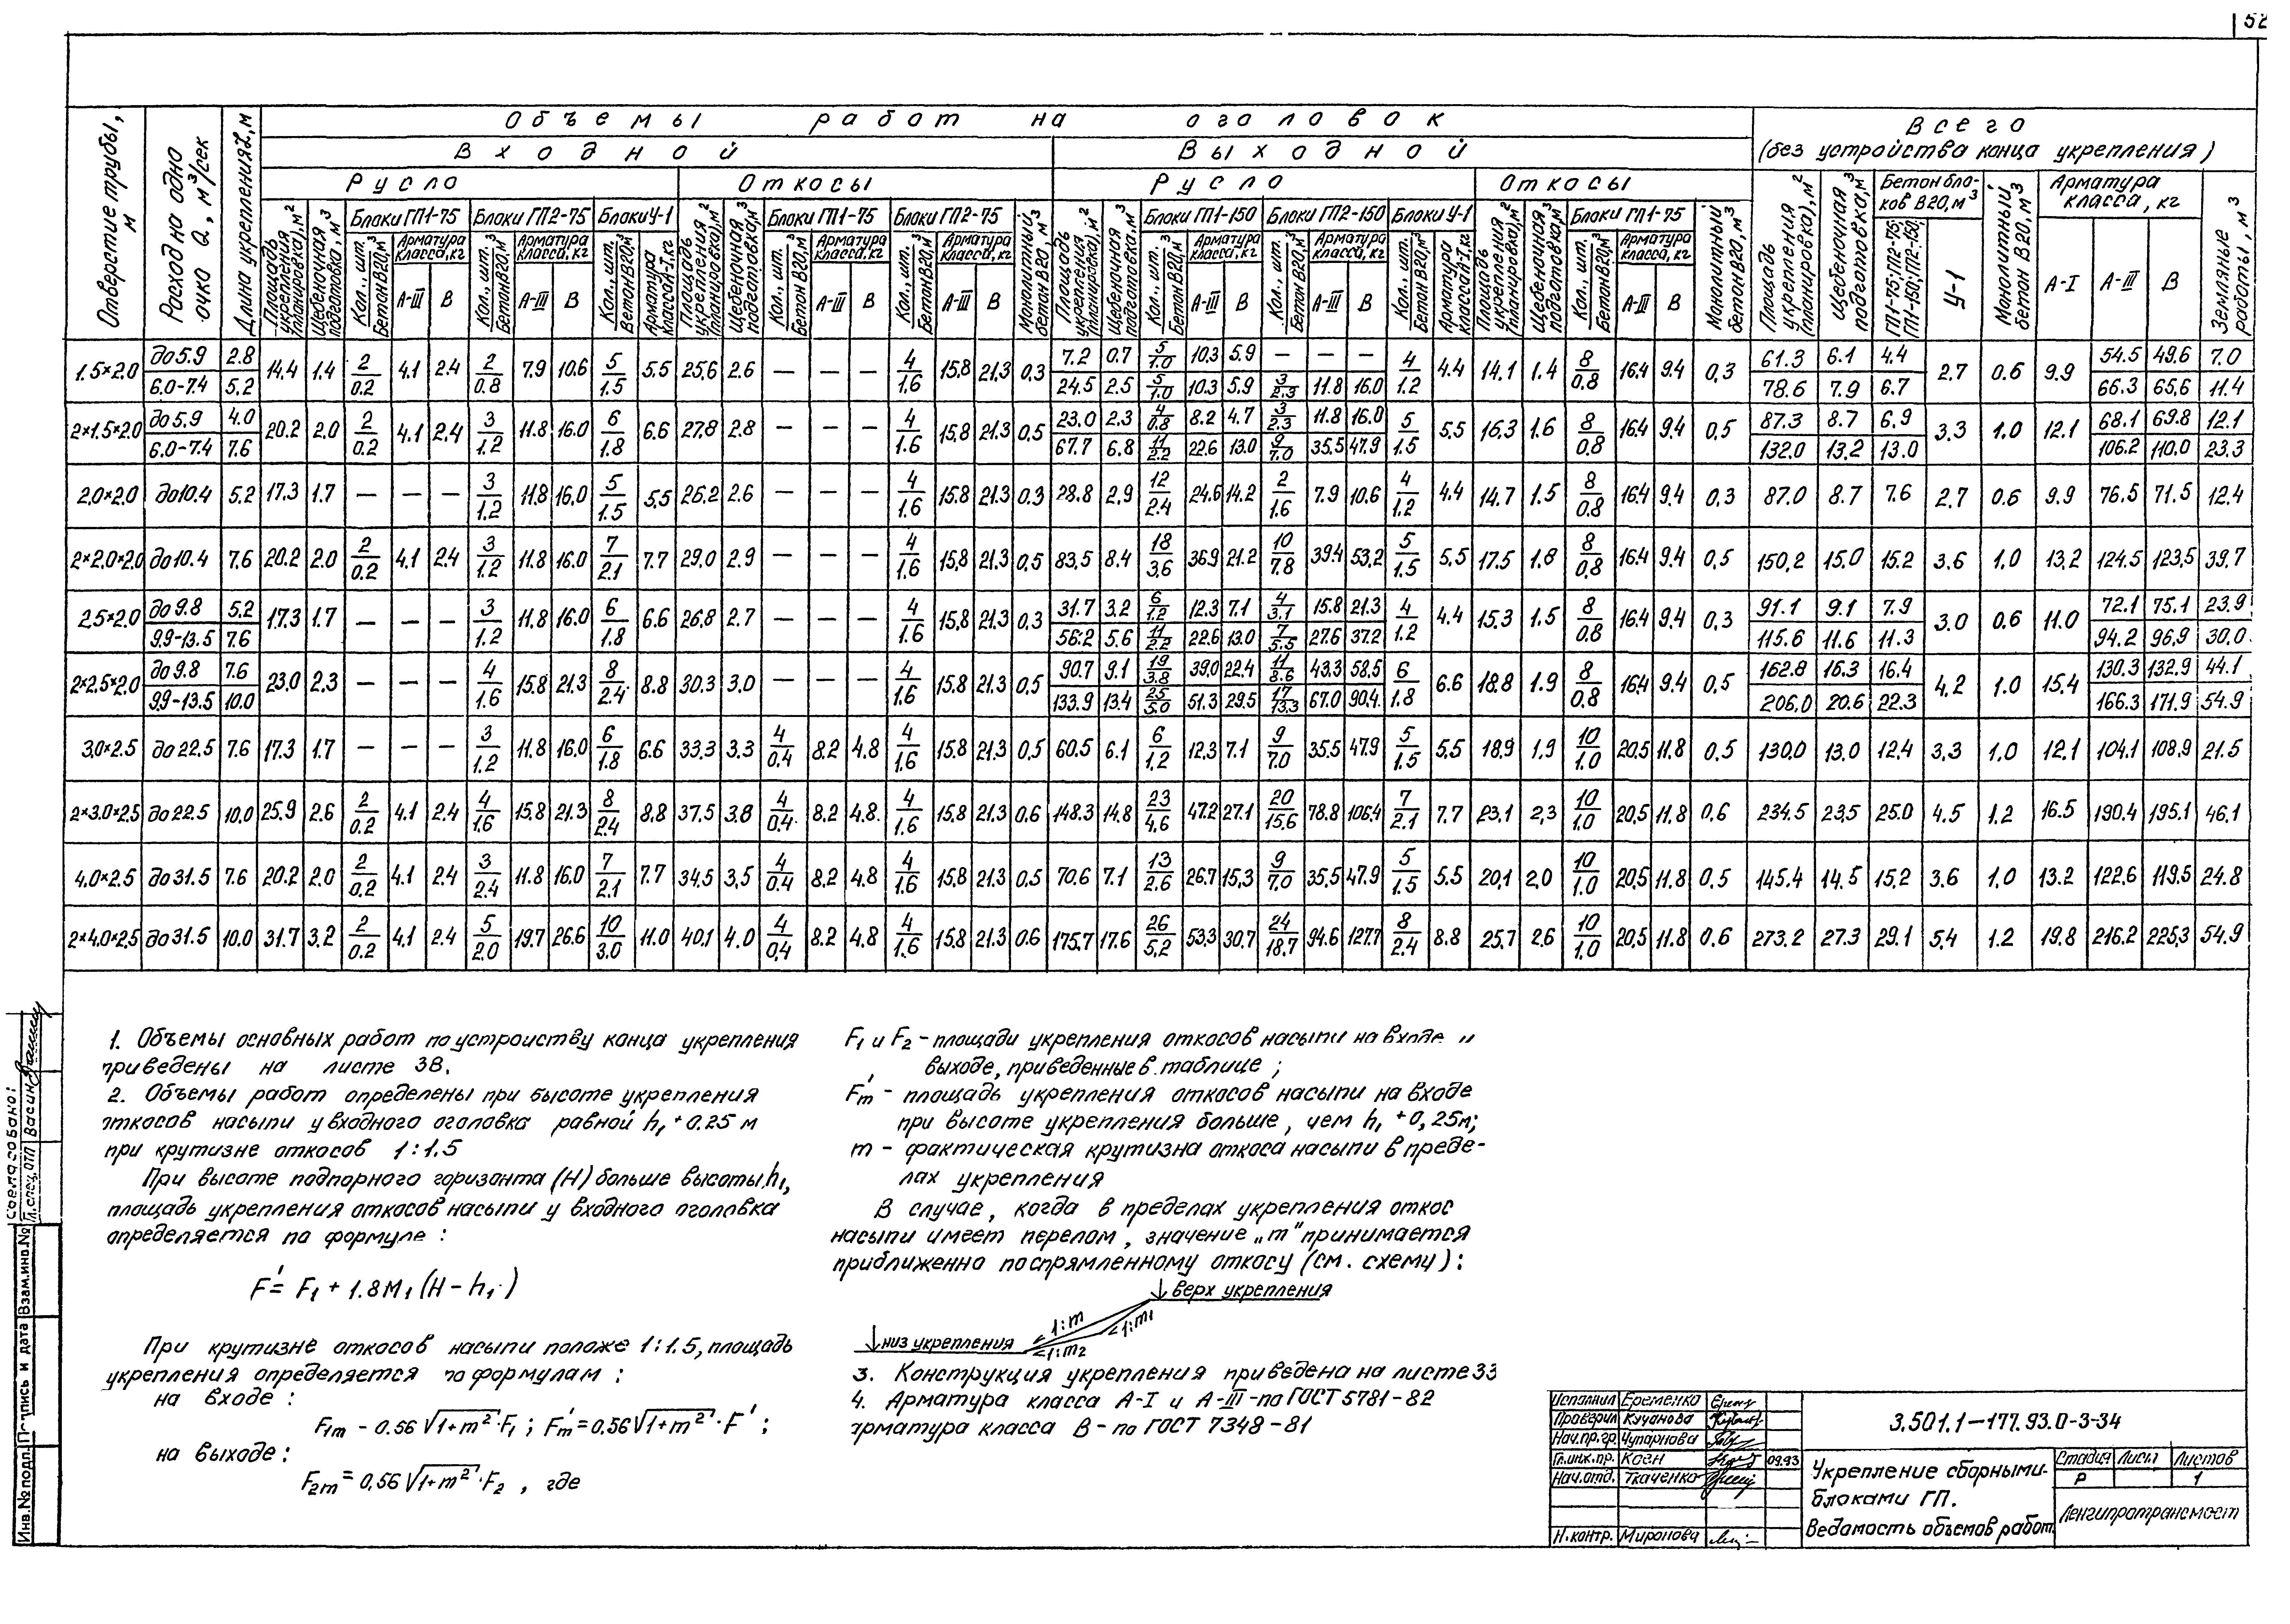 52
Объемы работ на оголовок
Всего
(без устройства конца укрепления)
Входной
Выходной
Русло
Откосы
Русло
Откосы
Отверстие трубы, м
Расход на одно очко Q, м³/сек
Длина укрепления L, м
Площадь укрепления (планировка), м²
Щебеночная подготовка, м³
Блоки ГП1-75
Блоки ГП2-75
Блоки У-1
Кол., шт. Бетон В20, м³
Арматура класса, кг
А-III
В
Арматура класса А-I, кг
Монолитный бетон В20, м³
Блоки ГП1-150
Блоки ГП2-150
Блоки У-1
Блоки ГП1-75
Бетон блоков В20, м³
ГП1-75; ГП2-75; ГП1-150; ГП2-150;
У-1
Монолитный бетон В20, м³
Арматура класса, кг
А-I
А-III
В
Земляные работы, м³
1.5×2.0 до 5.9 2.8 14.4 1.4 2/0.2 4.1 2.4 2/0.8 7.9 10.6 5/1.5 5.5 25.6 2.6 — — — 4/1.6 15.8 21.3 0.3 7.2 0.7 5/1.0 10.3 5.9 — — — 4/1.2 4.4 14.1 1.4 8/0.8 16.4 9.4 0.3 61.3 6.1 4.4 2.7 0.6 9.9 54.5 49.6 7.0
6.0-7.4 5.2 24.5 2.5 5/1.0 10.3 5.9 3/2.3 11.8 16.0 78.6 7.9 6.7 66.3 65.6 11.4
2×1.5×2.0 до 5.9 4.0 20.2 2.0 2/0.2 4.1 2.4 3/1.2 11.8 16.0 6/1.8 6.6 27.8 2.8 — — — 4/1.6 15.8 21.3 0.5 23.0 2.3 4/0.8 8.2 4.7 3/2.3 11.8 16.0 5/1.5 5.5 16.3 1.6 8/0.8 16.4 9.4 0.5 87.3 8.7 6.9 3.3 1.0 12.1 68.1 69.8 12.1
6.0-7.4 7.6 67.7 6.8 11/2.2 22.6 13.0 9/7.0 35.5 47.9 132.0 13.2 13.0 106.2 110.0 23.3
2.0×2.0 до 10.4 5.2 17.3 1.7 — — — 3/1.2 11.8 16.0 5/1.5 5.5 26.2 2.6 — — — 4/1.6 15.8 21.3 0.3 28.8 2.9 12/2.4 24.6 14.2 2/1.6 7.9 10.6 4/1.2 4.4 14.7 1.5 8/0.8 16.4 9.4 0.3 87.0 8.7 7.6 2.7 0.6 9.9 76.5 71.5 12.4
2×2.0×2.0 до 10.4 7.6 20.2 2.0 2/0.2 4.1 2.4 3/1.2 11.8 16.0 7/2.1 7.7 29.0 2.9 — — — 4/1.6 15.8 21.3 0.5 83.5 8.4 18/3.6 36.9 21.2 10/7.8 39.4 53.2 5/1.5 5.5 17.5 1.8 8/0.8 16.4 9.4 0.5 150.2 15.0 15.2 3.6 1.0 13.2 124.5 123.5 39.7
2.5×2.0 до 9.8 5.2 17.3 1.7 — — — 3/1.2 11.8 16.0 6/1.8 6.6 26.8 2.7 — — — 4/1.6 15.8 21.3 0.3 31.7 3.2 6/1.2 12.3 7.1 4/3.1 15.8 21.3 4/1.2 4.4 15.3 1.5 8/0.8 16.4 9.4 0.3 91.1 9.1 7.9 3.0 0.6 11.0 72.1 75.1 23.9
9.9-13.5 7.6 56.2 5.6 11/2.2 22.6 13.0 7/5.5 27.6 37.2 115.6 11.6 11.3 94.2 96.9 30.0
2×2.5×2.0 до 9.8 7.6 23.0 2.3 — — — 4/1.6 15.8 21.3 8/2.4 8.8 30.3 3.0 — — — 4/1.6 15.8 21.3 0.5 90.7 9.1 19/3.8 39.0 22.4 11/8.6 43.3 58.5 6/1.8 6.6 18.8 1.9 8/0.8 16.4 9.4 0.5 162.8 16.3 16.4 4.2 1.0 15.4 130.3 132.9 44.1
9.9-13.5 10.0 133.9 13.4 25/5.0 51.3 29.5 17/13.3 67.0 90.4 206.0 20.6 22.3 166.3 171.9 54.9
3.0×2.5 до 22.5 7.6 17.3 1.7 — — — 3/1.2 11.8 16.0 6/1.8 6.6 33.3 3.3 4/0.4 8.2 4.8 4/1.6 15.8 21.3 0.5 60.5 6.1 6/1.2 12.3 7.1 9/7.0 35.5 47.9 5/1.5 5.5 18.9 1.9 10/1.0 20.5 11.8 0.5 130.0 13.0 12.4 3.3 1.0 12.1 104.1 108.9 21.5
2×3.0×2.5 до 22.5 10.0 25.9 2.6 2/0.2 4.1 2.4 4/1.6 15.8 21.3 8/2.4 8.8 37.5 3.8 4/0.4 8.2 4.8 4/1.6 15.8 21.3 0.6 148.3 14.8 23/4.6 47.2 27.1 20/15.6 78.8 106.4 7/2.1 7.7 23.1 2.3 10/1.0 20.5 11.8 0.6 234.5 23.5 25.0 4.5 1.2 16.5 190.4 195.1 46.1
4.0×2.5 до 31.5 7.6 20.2 2.0 2/0.2 4.1 2.4 3/2.4 11.8 16.0 7/2.1 7.7 34.5 3.5 4/0.4 8.2 4.8 4/1.6 15.8 21.3 0.5 70.6 7.1 13/2.6 26.7 15.3 9/7.0 35.5 47.9 5/1.5 5.5 20.1 2.0 10/1.0 20.5 11.8 0.5 145.4 14.5 15.2 3.6 1.0 13.2 122.6 119.5 24.8
2×4.0×2.5 до 31.5 10.0 31.7 3.2 2/0.2 4.1 2.4 5/2.0 19.7 26.6 10/3.0 11.0 40.1 4.0 4/0.4 8.2 4.8 4/1.6 15.8 21.3 0.6 175.7 17.6 26/5.2 53.3 30.7 24/18.7 94.6 127.7 8/2.4 8.8 25.7 2.6 10/1.0 20.5 11.8 0.6 273.2 27.3 29.1 5.4 1.2 19.8 216.2 225.3 54.9
1. Объемы основных работ по устройству конца укрепления
приведены на листе 38.
2. Объемы работ определены при высоте укрепления
откосов насыпи у входного оголовка равной h₁ + 0.25 м
при крутизне откосов 1:1.5
При высоте подпорного горизонта (H) больше высоты h₁,
площадь укрепления откосов насыпи у входного оголовка
определяется по формуле:
F' = F₁ + 1.8M₁(H - h₁)
При крутизне откосов насыпи положе 1:1.5, площадь
укрепления определяется по формулам:
на входе:
F₁m - 0.56 √1+m² · F₁; F'm = 0,56 √1+m² · F';
на выходе:
F₂m = 0,56 √1+m² · F₂, где
F₁ и F₂ - площади укрепления откосов насыпи на входе и
выходе, приведенные в таблице;
F'm - площадь укрепления откосов насыпи на входе
при высоте укрепления больше, чем h₁ + 0,25м;
m - фактическая крутизна откоса насыпи в преде-
лах укрепления
В случае, когда в пределах укрепления откос
насыпи имеет перелом, значение „m" принимается
приближенно по спрямленному откосу (см. схему):
верх укрепления
1:m
1:m₁
низ укрепления
1:m₂
3. Конструкция укрепления приведена на листе 33
4. Арматура класса А-I и А-III - по ГОСТ 5781-82
арматура класса В - по ГОСТ 7348-81
Согласовано:
Гл. спец. ОТП Васин
Взам.инв.№
Подпись и дата
Инв.№ подл.
Исполнил Еременко
Проверил Кучанова
Нач.пр.гр. Чупарнова
Гл.инж.пр. Коен 09.93
Нач.отд. Ткаченко
Н.контр. Миронова
3.501.1-177.93.0-3-34
Укрепление сборными
блоками ГП.
Ведомость объемов работ.
Стадия Лист Листов
Р 1
Ленгипротрансмост